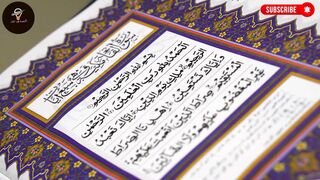 SUBSCRIBE
بِسْمِ اللَّهِ الرَّحْمَٰنِ الرَّحِيمِ
الْحَمْدُ لِلَّهِ رَبِّ الْعَالَمِينَ الرَّحْمَٰنِ
الرَّحِيمِ مَالِكِ يَوْمِ الدِّينِ إِيَّاكَ نَعْبُدُ
وَإِيَّاكَ نَسْتَعِينُ اهْدِنَا الصِّرَاطَ
الْمُسْتَقِيمَ صِرَاطَ الَّذِينَ أَنْعَمْتَ عَلَيْهِمْ
غَيْرِ الْمَغْضُوبِ عَلَيْهِمْ وَلَا الضَّالِّينَ